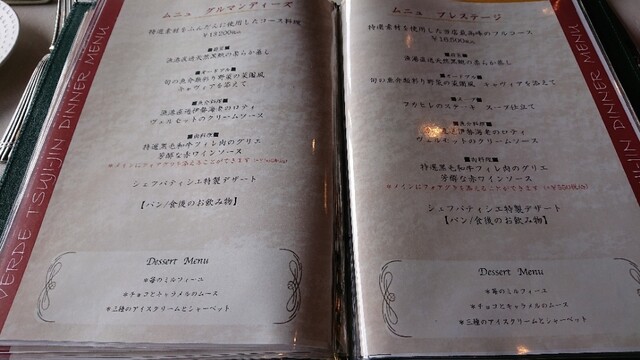 VERDE TSUJIJIN DINNER MENU
ムニュ グルマンディーズ
特選素材をふんだんに使用したコース料理
■前菜■
漁港直送天然黒鯛の柔らか蒸し
■オードブル■
旬の魚介類彩り野菜の菜園風
キャヴィアを添えて
■魚介料理■
漁港直送伊勢海老のロティ
ヴェルモットのクリームソース
■肉料理■
特選黒毛和牛フィレ肉のグリエ
芳醇な赤ワインソース
※メインにフォアグラを添えることができます
シェフパティシエ特製デザート
【パン/食後のお飲み物】
Dessert Menu
※苺のミルフィーユ
※チョコとキャラメルのムース
※三種のアイスクリームとシャーベット
ムニュ プレステージ
特選素材を使用した当店最高峰のフルコース
漁港直送天然黒鯛の柔らか蒸し
■オードブル■
旬の魚介類彩り野菜の菜園風 キャヴィアを添えて
■スープ■
フカヒレのステーキ スープ仕立て
■魚介料理■
伊勢海老のロティ
ヴェルモットのクリームソース
■肉料理■
特選黒毛和牛フィレ肉のグリエ
芳醇な赤ワインソース
※メインにフォアグラを添えることができます
シェフパティシエ特製デザート
【パン/食後のお飲み物】
Dessert Menu
※苺のミルフィーユ
※チョコとキャラメルのムース
※三種のアイスクリームとシャーベット
DINNER MENU